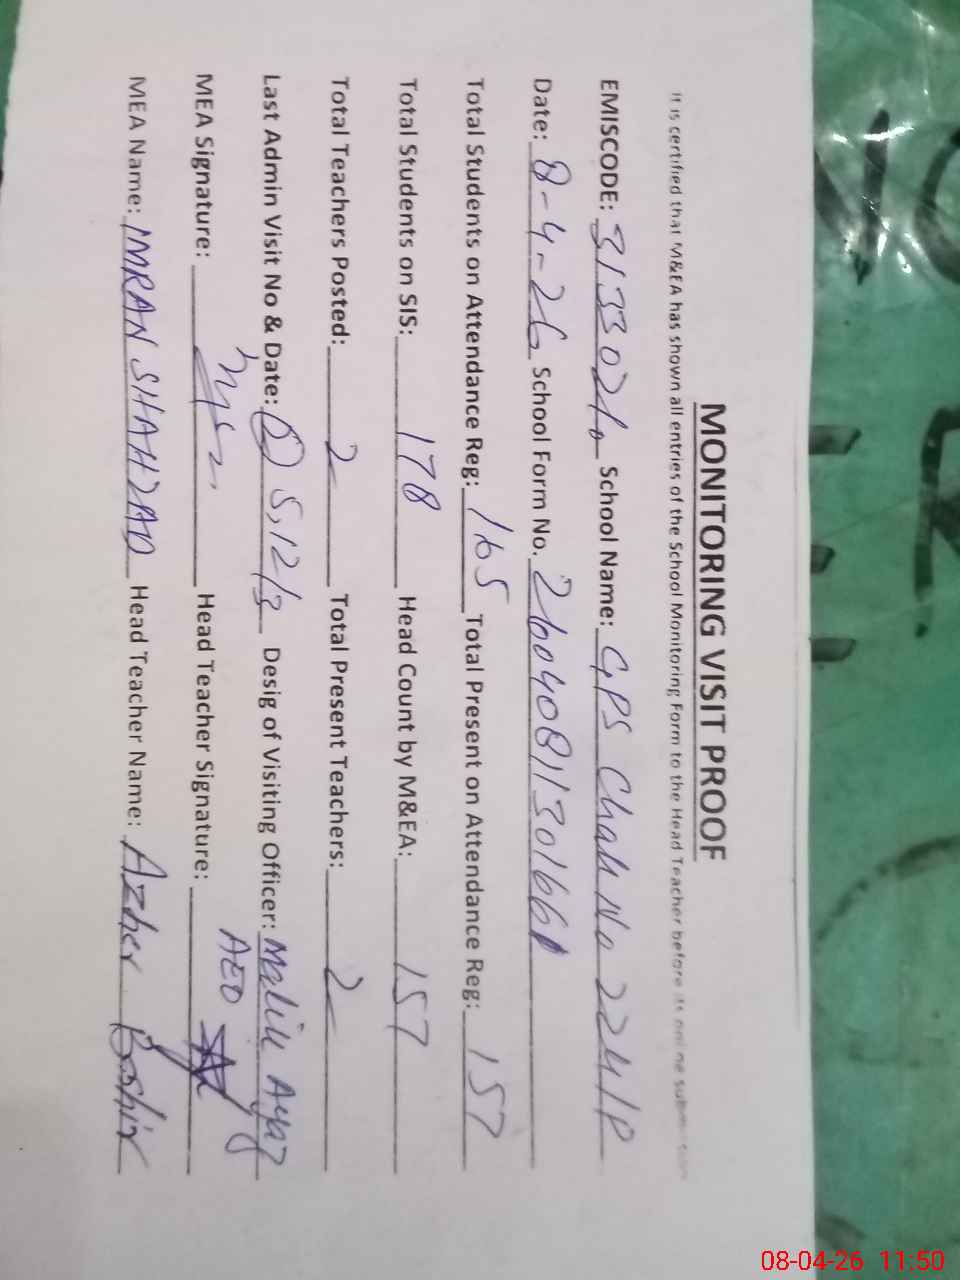 MONITORING VISIT PROOF
It is certified that M&EA has shown all entries of the School Monitoring Form to the Head Teacher before its online submission
EMISCODE: 31330210 School Name: GPS Chak No 224/P
Date: 8-4-26 School Form No. 2604081130166
Total Students on Attendance Reg: 165 Total Present on Attendance Reg: 157
Total Students on SIS: 178 Head Count by M&EA: 157
Total Teachers Posted: 2 Total Present Teachers: 2
Last Admin Visit No & Date: 5,12/3 Desig of Visiting Officer: Malik Ayaz
AEO
MEA Signature: Head Teacher Signature:
MEA Name: IMRAN SHAHZAD Head Teacher Name: Azher Bashir
08-04-26 11:50